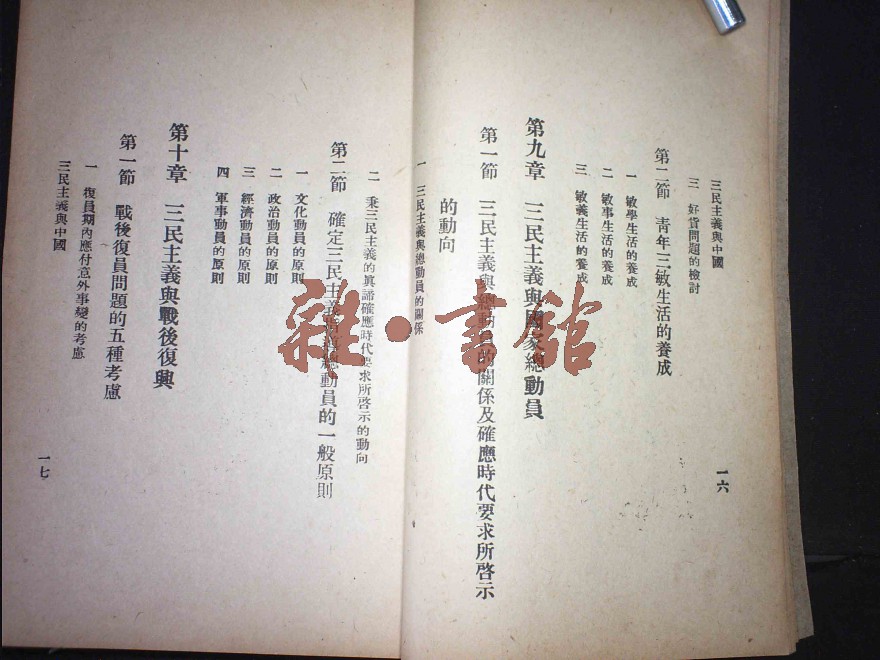 三民主義與中國
三 好貨問題的檢討
第二節 青年三敏生活的養成
一 敏學生活的養成
二 敏事生活的養成
三 敏義生活的養成
第九章 三民主義與國家總動員
第一節 三民主義與總動員的關係及確應時代要求所啓示
的動向
一 三民主義與總動員的關係
一六
二 秉三民主義的眞諦確應時代要求所啓示的動向
第二節 確定三民主義 總動員的一般原則
一 文化動員的原則
二 政治動員的原則
三 經濟動員的原則
四 軍事動員的原則
第十章 三民主義與戰後復興
第一節 戰後復員問題的五種考慮
一 復員期內應付意外事變的考慮
三民主義與中國
一七
雜·書館